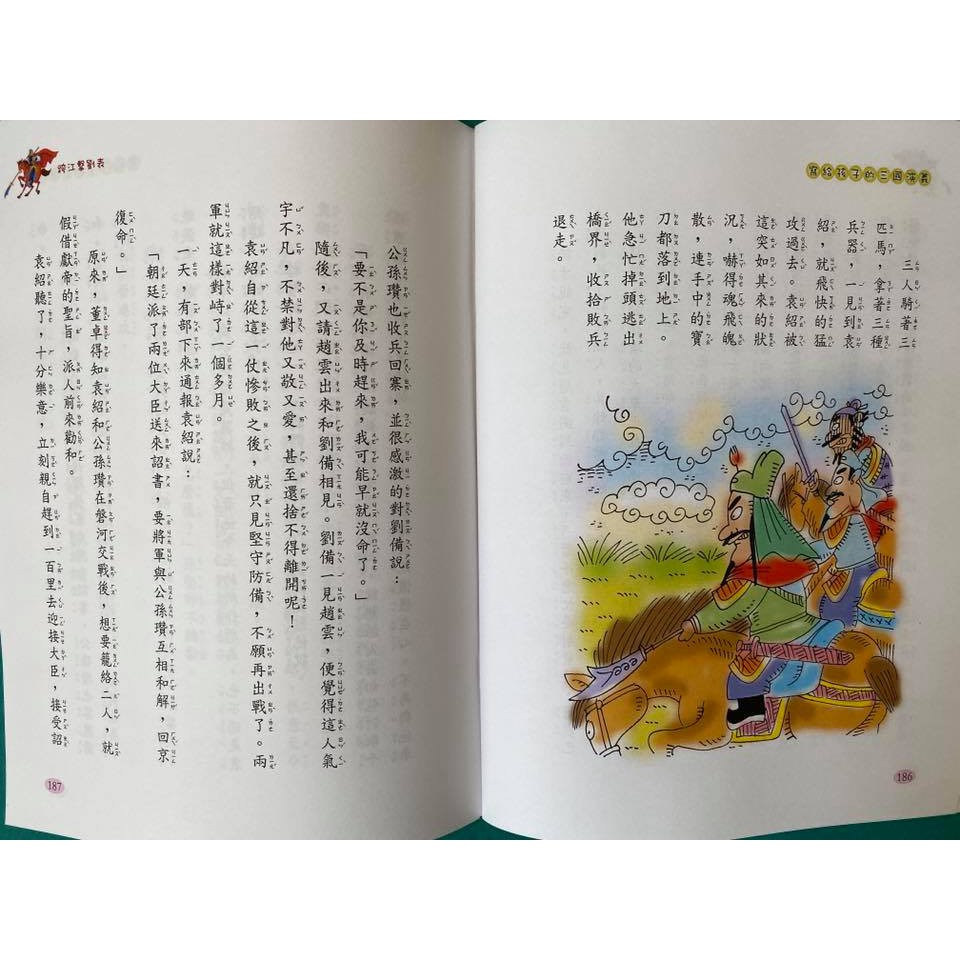 寫給孩子的三國演義
三人騎著三
匹馬，拿著三種
兵器，一見到袁
紹，就飛快的猛
攻過去。袁紹被
這突如其來的狀
況，嚇得魂飛魄
散，連手中的寶
刀都落到地上。
他急忙掉頭逃出
橋界，收拾敗兵
退走。
186
跨江擊劉表
公孫瓚也收兵回寨，並很感激的對劉備說：
「要不是你及時趕來，我可能早就沒命了。」
隨後，又請趙雲出來和劉備相見。劉備一見趙雲，便覺得這人氣
宇不凡，不禁對他又敬又愛，甚至還捨不得離開呢！
袁紹自從這一仗慘敗之後，就只見堅守防備，不願再出戰了。兩
軍就這樣對峙了一個多月。
一天，有部下來通報袁紹說：
「朝廷派了兩位大臣送來詔書，要將軍與公孫瓚互相和解，回京
復命。」
原來，董卓得知袁紹和公孫瓚在磐河交戰後，想要籠絡二人，就
假借獻帝的聖旨，派人前來勸和。
袁紹聽了，十分樂意，立刻親自趕到一百里去迎接大臣，接受詔
187